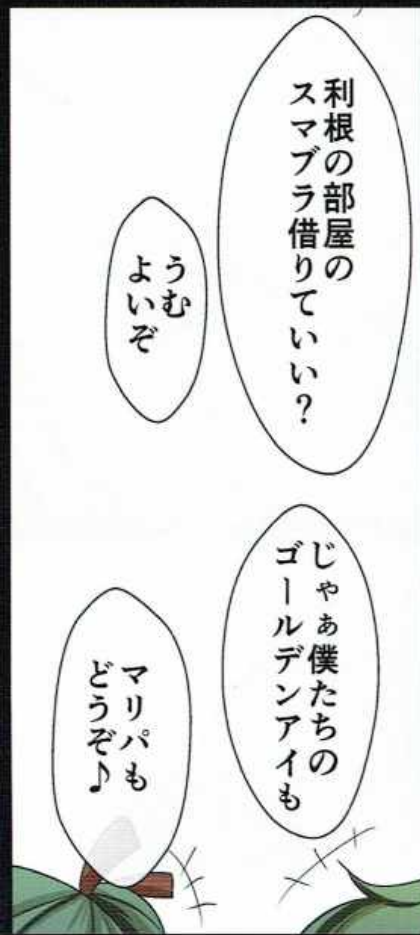 利根の部屋の
スマブラ借りていい？
うむ
よいぞ
じゃぁ僕たちの
ゴールデンアイも
マリパも
どうぞ♪